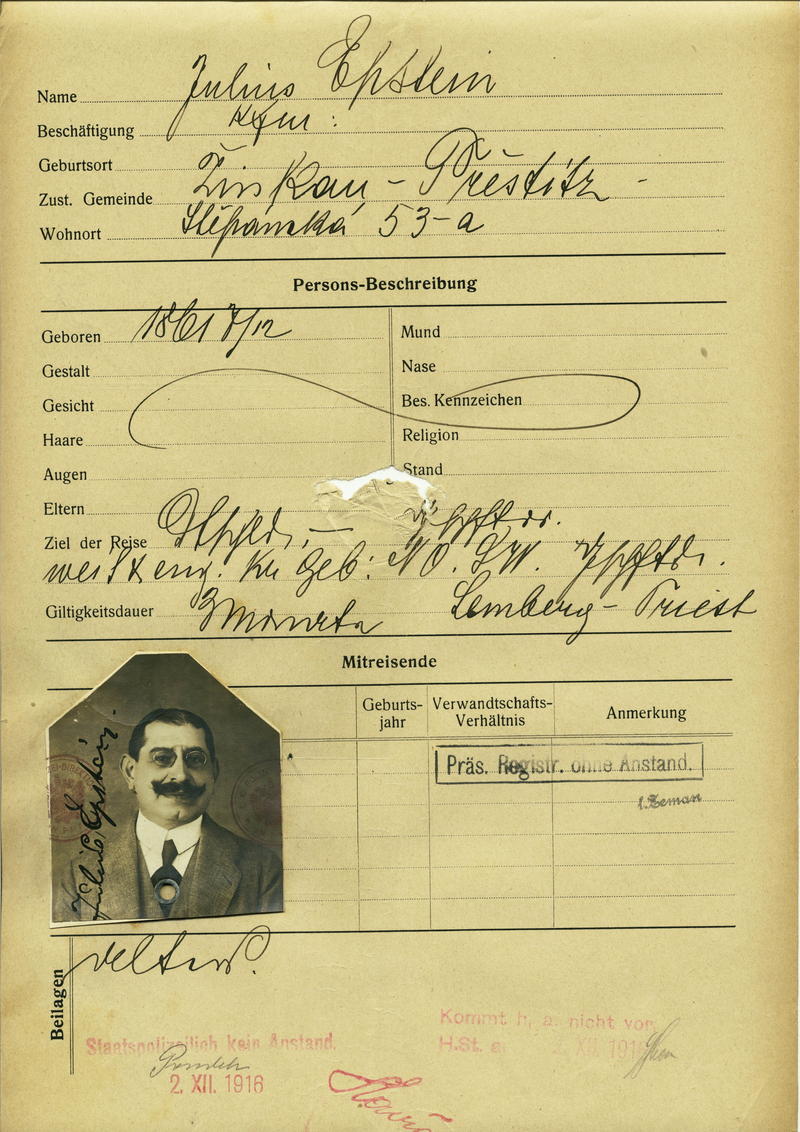 Name Julius Epstein
Beschäftigung Kfm:
Geburtsort
Zust. Gemeinde Žinkau - Přestitz -
Wohnort Štěpánská 53-a
Persons-Beschreibung
Geboren 1861 7/12
Mund
Gestalt
Nase
Gesicht
Bes. Kennzeichen
Haare
Religion
Augen
Stand
Eltern
Ziel der Reise
Giltigkeitsdauer 3 Monate Lemberg - Triest
Mitreisende
Geburts-
jahr
Verwandtschafts-
Verhältnis
Anmerkung
Präs. Registr. ohne Anstand.
Zeman
Julius Epstein.
Beilagen
Staatspolizeilich kein Anstand.
2. XII. 1916
Kommt h. a. nicht vor
H.St. a. 2. XII. 191